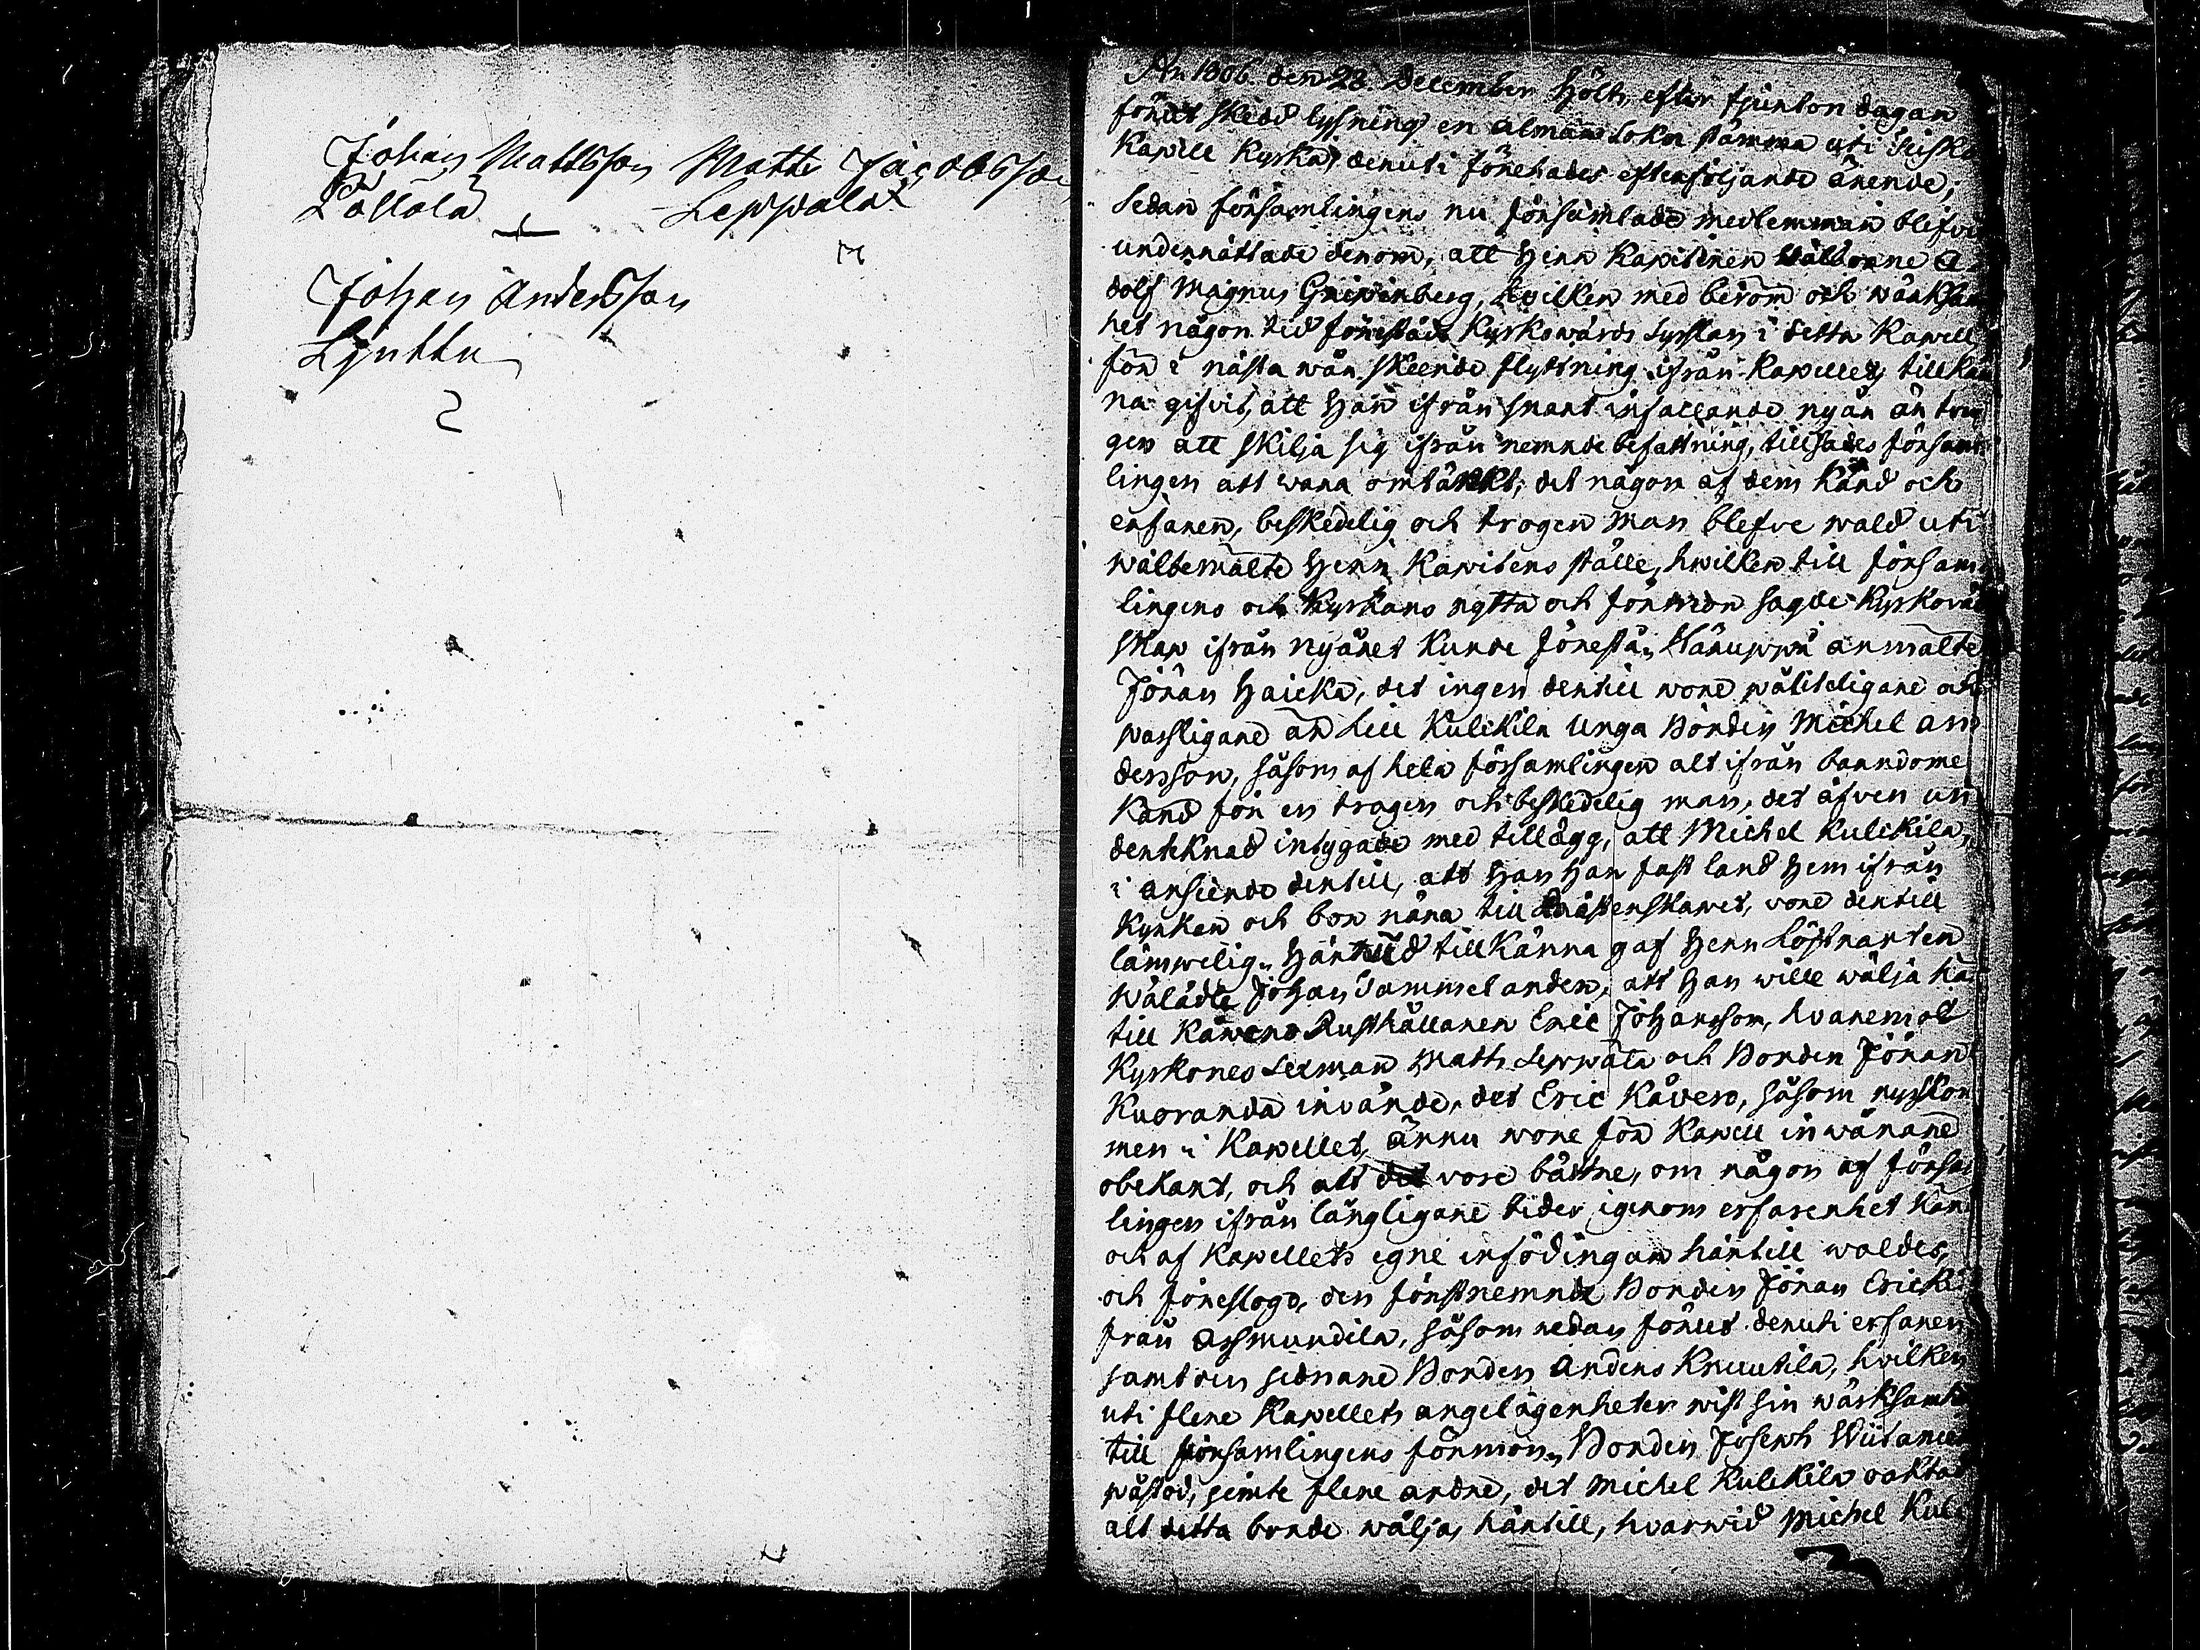 Johan Mattsson Matts Jacobsson
Pållala Leppalax
Johan Andersson
Ljuttu
År 1806 den 28 December hölts, efter fjorton dagar
förut skedd lysning en alman Sokn stämma uti
Kapell Kyrka, deruti förehades efterföljande ärende;
Sedan församlingens nu församlade medlemmar blefvit
underrättade derom, att Herr Kapitenen Välborne A-
dolf Magnus Gripenberg, hvilken med beröm och wärksam
het någon tid förestådt Kyrkowärds Sysslan i detta Kapell
för i nästa wår skeende flyttning ifrån Kapellet, tillkän
na gifvit, att Han ifrån snart infallande nyår är trun
gen att skilja sig ifrån nemnde befattning, tillsades försam
lingen att wara omtänkt, det någon af dem känd och
erfaren, beskedelig och trogen man blefve wald uti
wälbemälte Herr Kapitens ställe, hwilken till försam
lingens och Kyrkans nytta och förmon sagde Kyrkovärd
skap ifrån nyåret kunde förestå, Häruppå anmälte
Jöran Haicka, det ingen dertill wore wälitligare och
passligare än till Kulckila Unga Bonden Michel An
dersson, såsom af hela församlingen alt ifrån barndomen
känd för en trogen och beskedelig man, det äfven un
derteknad intygade med tillägg, att Michel Kulckila,
i anseende dertill, att Han har fast land Hem ifrån
Kyrkan och bor nära till Prästenskapet, vore dertill
lämpelig. Härwid tillkänna gaf Herr Löjtnanten
Wälädle Johan Tammelander, att Han wille wälja hä
till Käwers Rusthållaren Eric Johansson, hvaremot
Kyrkones Sexman Matts Leppälä och Bonden Jöran
Kuoranda invände, det Eric Kåvero, såsom nyskom
men i Kapellet, ännu wore för Kapell inwånare
obekant, och att det vore bättre, om någon af försam
lingen ifrån långligare tider igenom erfarenhet känd
och af Kapellets egne infödingar härtill waldes,
och föreslogo, den förstnemnde Bonden Jöran Erickil
från Assmundila, såsom redan förut deruti erfaren
samt den sednare Bonden Anders Knuutila, hvilken
uti flere Kapellets angelägenheter wist sin wärksamhe
till församlingens förmon. Bonden Joseph Wiitanie
påstod, jemte flere andre, det Michel Kulckila oaktad
alt detta borde wäljas härtill, hvarwid Michel Kulc